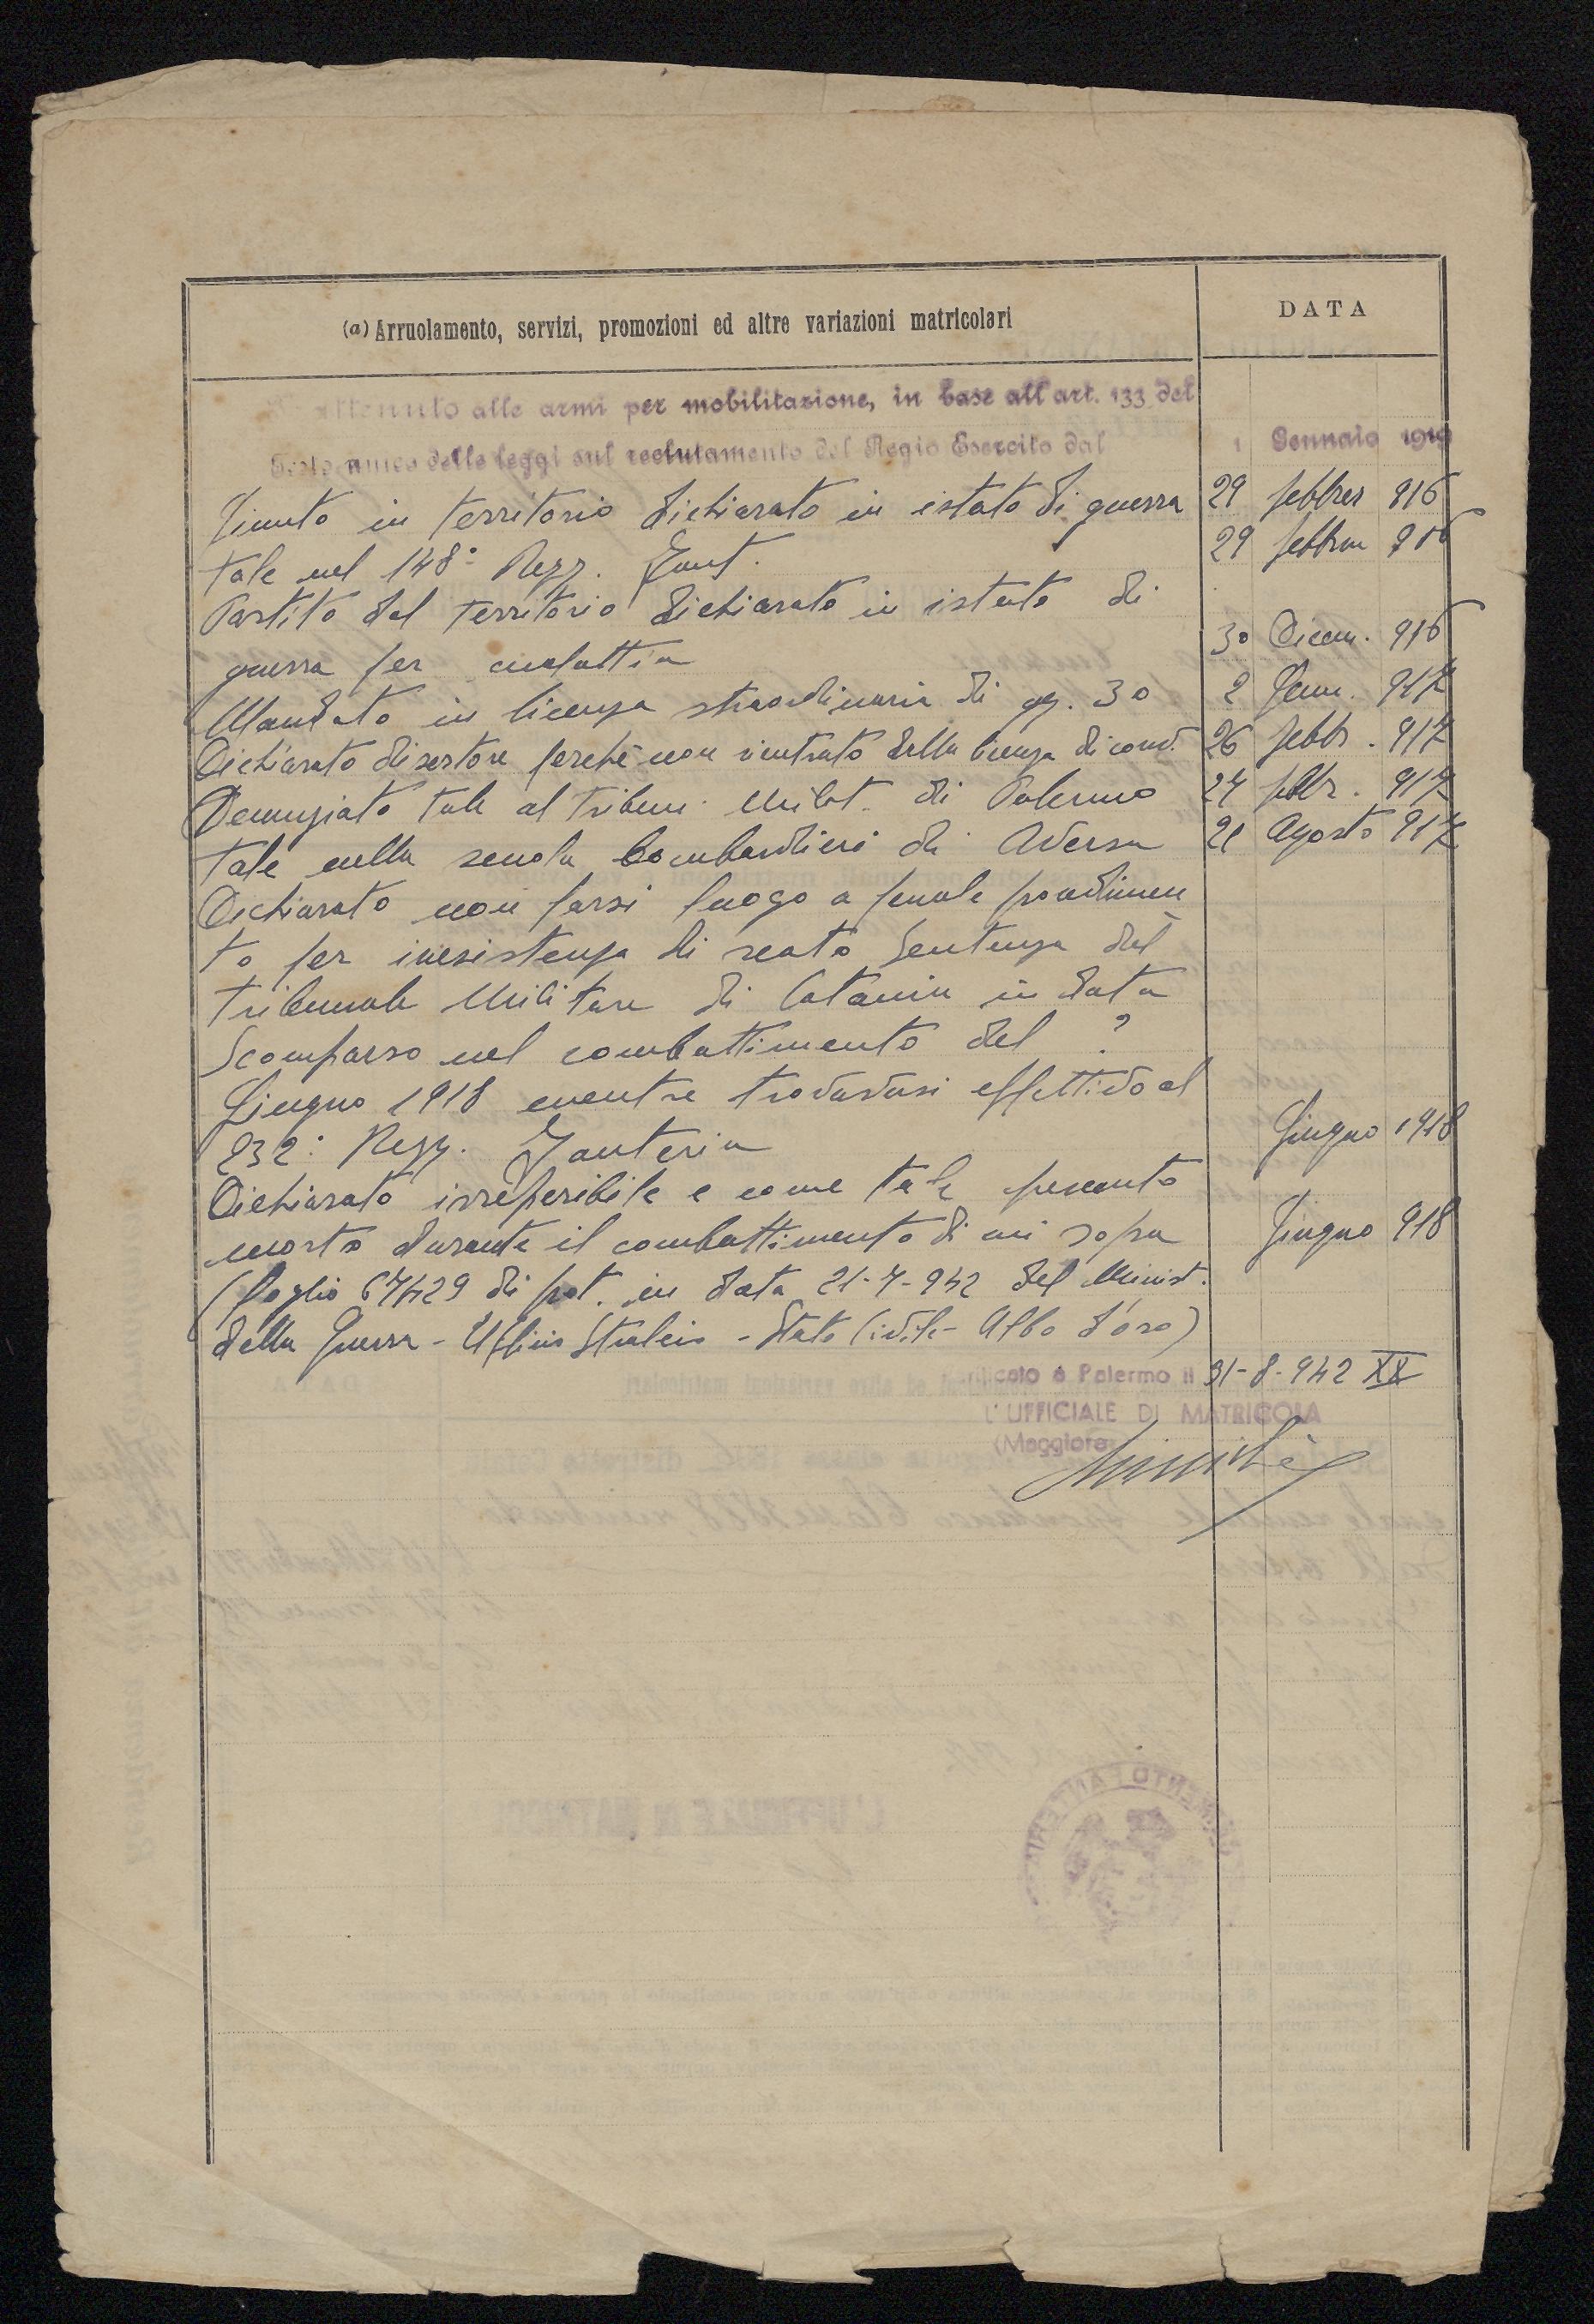 (a) Arruolamento, servizi, promozioni ed altre variazioni matricolari DATA
alle armi per mobilitazione, in base all'art. 133 del
unico delle leggi sul reclutamento del Regio Esercito dal 1 Gennaio 1919
Giunto in territorio dichiarato in istato di guerra 29 febbraio 916
tale nel 148° Regg. Fant. 29 febbraio 916
Partito dal territorio dichiarato in istato di
guerra per malattia 30 Dicem. 916
Mandato in licenza straordinaria di gg. 30 2 Genn. 917
Dichiarato disertore perchè non rientrato dalla licenza di conv. 26 febbr. 917
Denunziato tale al Tribun. Milit. di Palermo 27 febbr. 917
Tale nella scuola bombardieri di Aversa 21 Agosto 917
Dichiarato non farsi luogo a penale procedimen
to per inesistenza di reato Sentenza del
Tribunale Militare di Catania in data
Scomparso nel combattimento del ?
Giugno 1918 mentre trovavasi effettivo al
232° Regg. Fanteria Giugno 1918
Dichiarato irreperibile e come tale presunto
morto durante il combattimento di cui sopra Giugno 918
(foglio 67429 di prot. in data 21-7-942 del Minist.
della Guerra - Ufficio Stralcio - Stato Civile - Albo d'oro)
Palermo il 31-8-942 XX
L'UFFICIALE DI MATRICOLA
(Maggiore